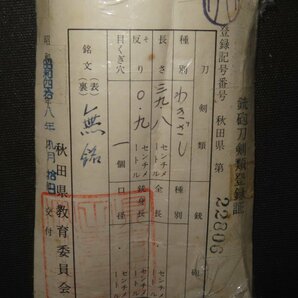 銃砲刀剣類登録証
登録記号番号 秋田県 第 22806 号
刀剣類 銃砲
種別 わきざし 種別
長さ 三九・八 センチメートル 全長 センチメートル
そり 〇・九 センチメートル 銃身長 センチメートル
目くぎ穴 一個 口径 センチメートル
銘文 (表) 無銘
(裏)
昭和四拾八年 月 拾 日 交付
秋田県教育委員会